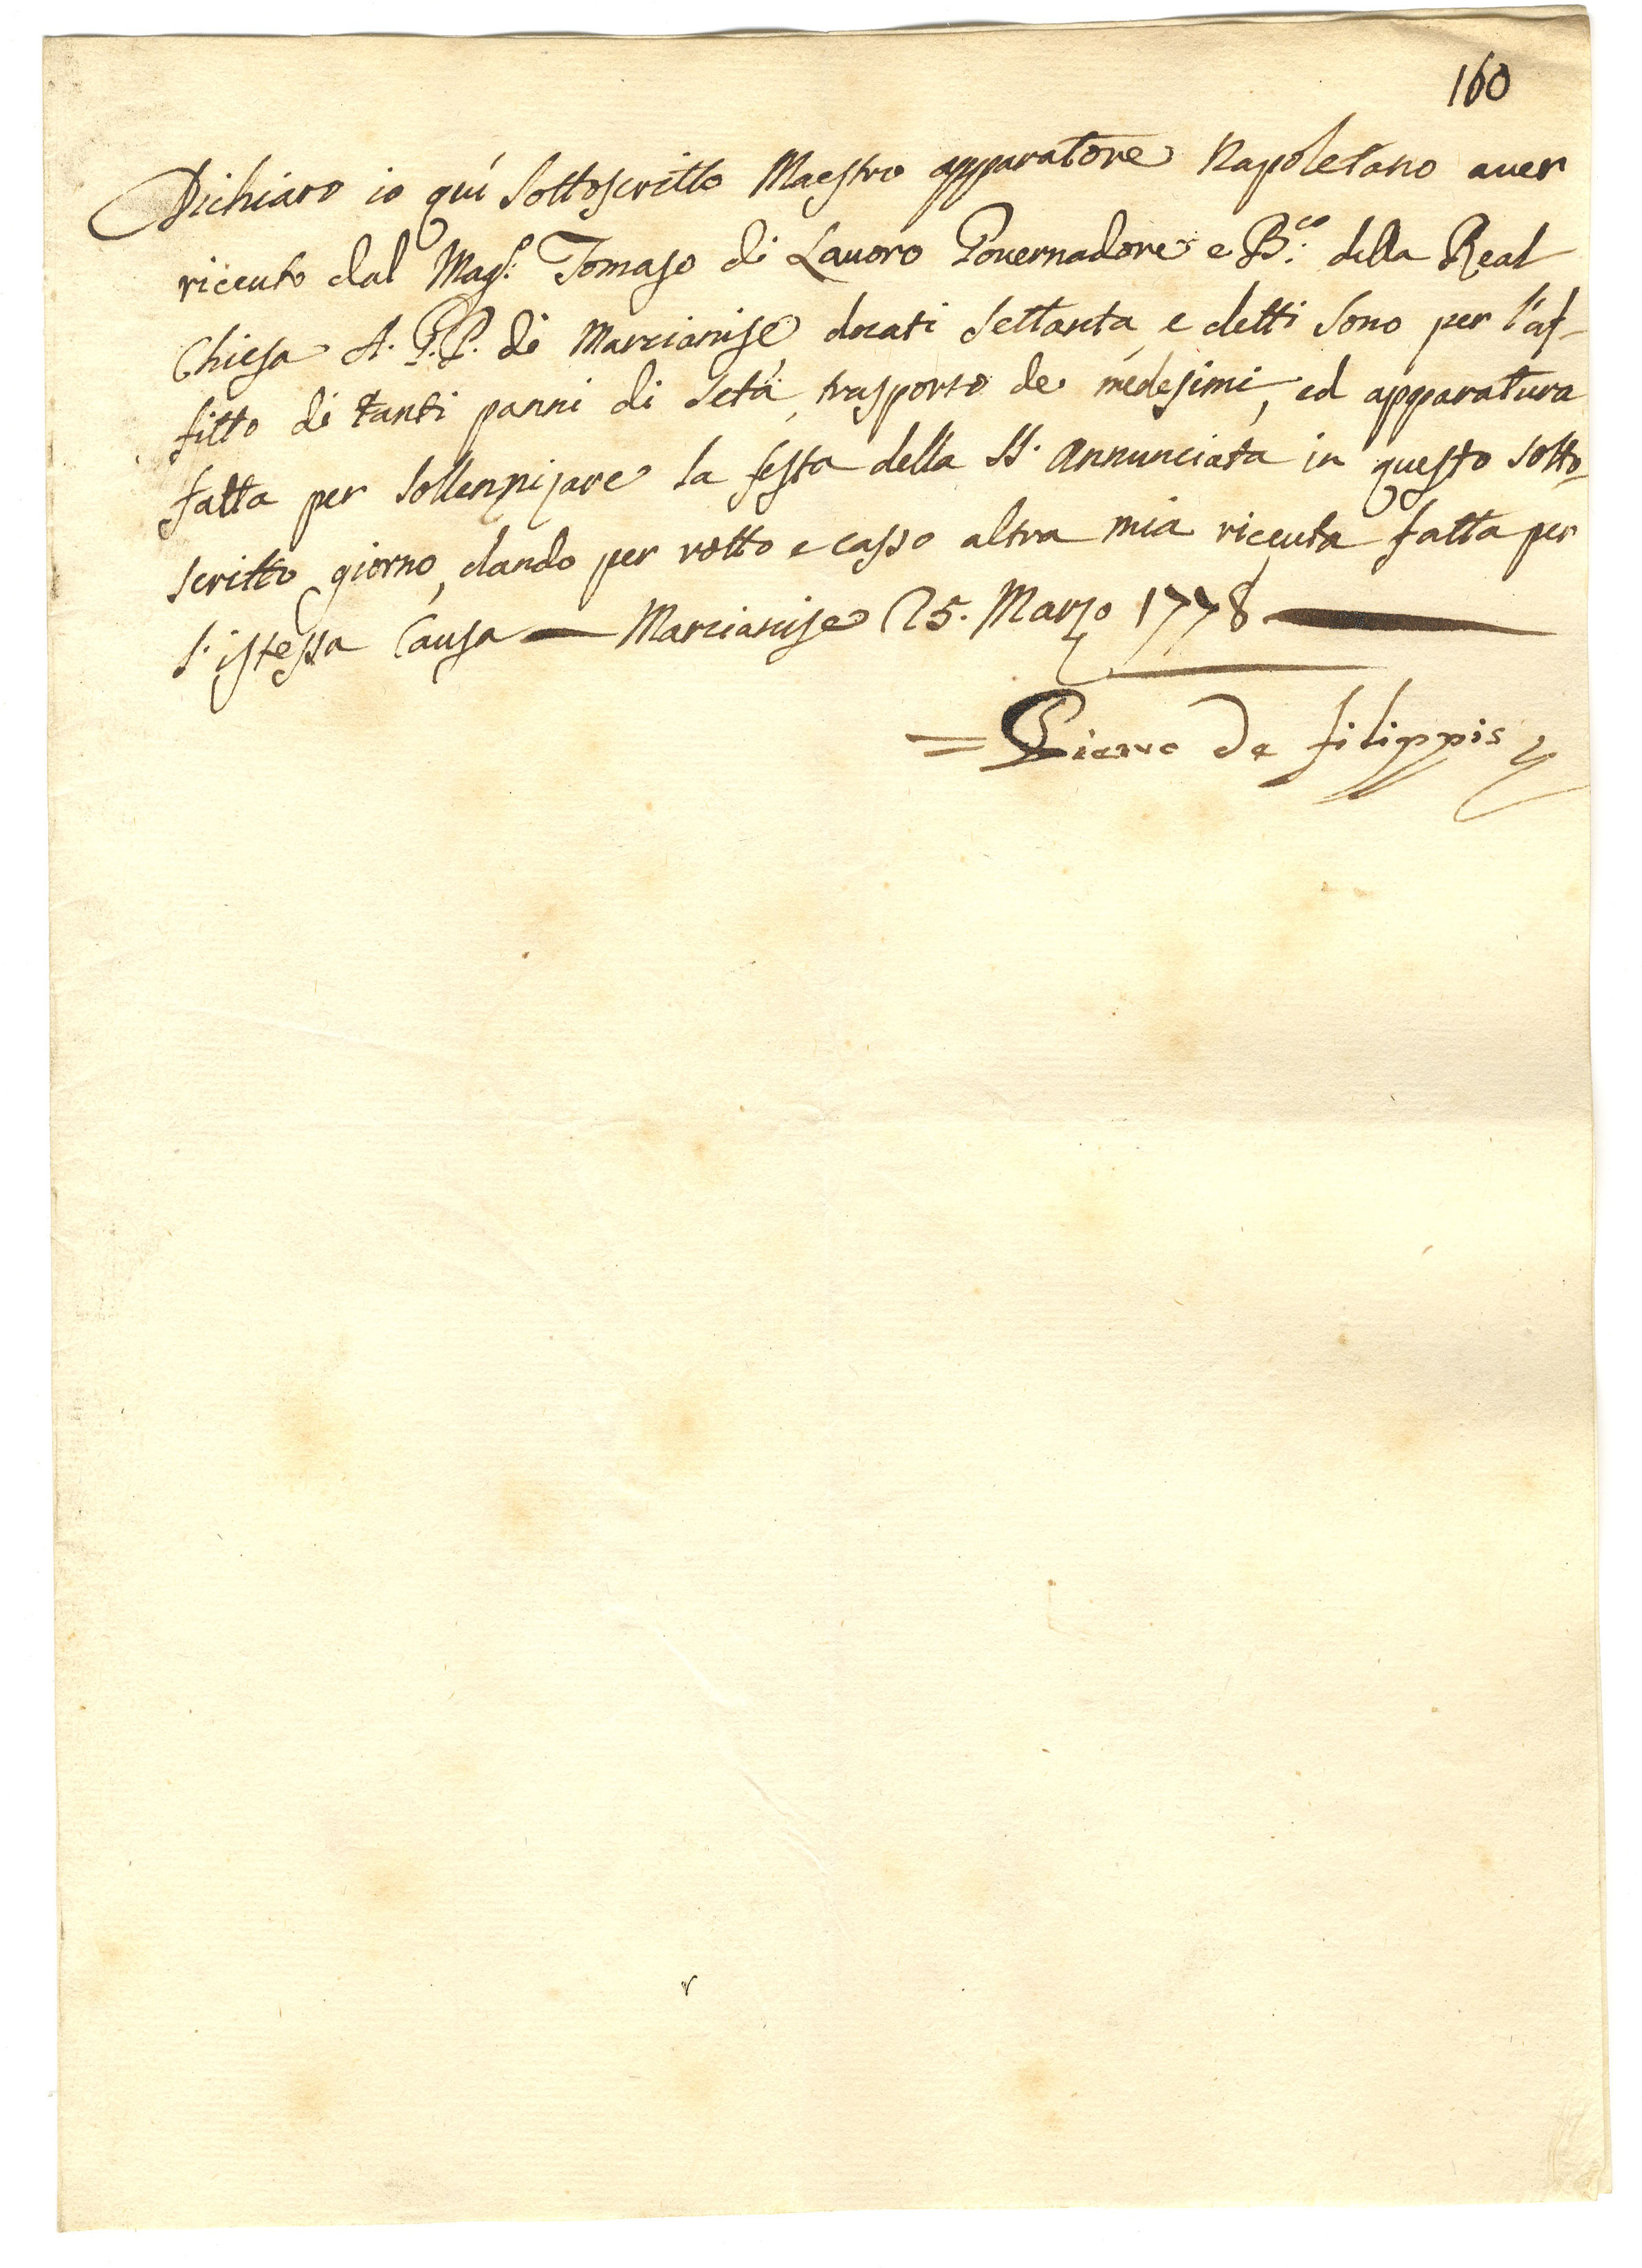 160
Dichiaro io quí sottoscritto Maestro apparatore Napoletano aver
riceuto dal Mag.^o Tomaso di Lauoro Gouernadore e B.^co della Real
Chiesa A. G. P. di Marcianise ducati settanta, e detti sono per l'af-
fitto di tanti panni di seta, trasporto de medesimi, ed apparatura
fatta per sollennizare la festa della SS. Annunciata in questo sotto-
scritto giorno, dando per rotto e casso altra mia riceuta fatta per
l'istessa Causa — Marcianise 25. Marzo 1778 —
= Pietro de filippis